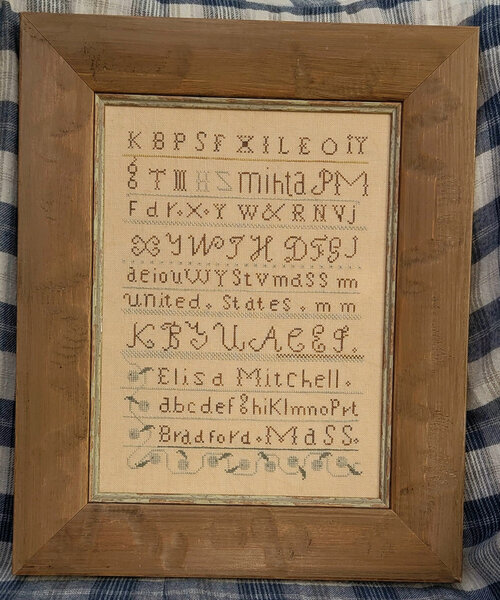 K B P S F X I L E O I Y
8 T H S minta P M
F d r . X . Y W & R N V j
Y W T H D F G J
a e i o u W Y S t v m a s s m
united . States . m m
K B Y U A C E F .
Elisa Mitchell .
a b c d e f g h i K l m n o P r t
Bradford . Mass .